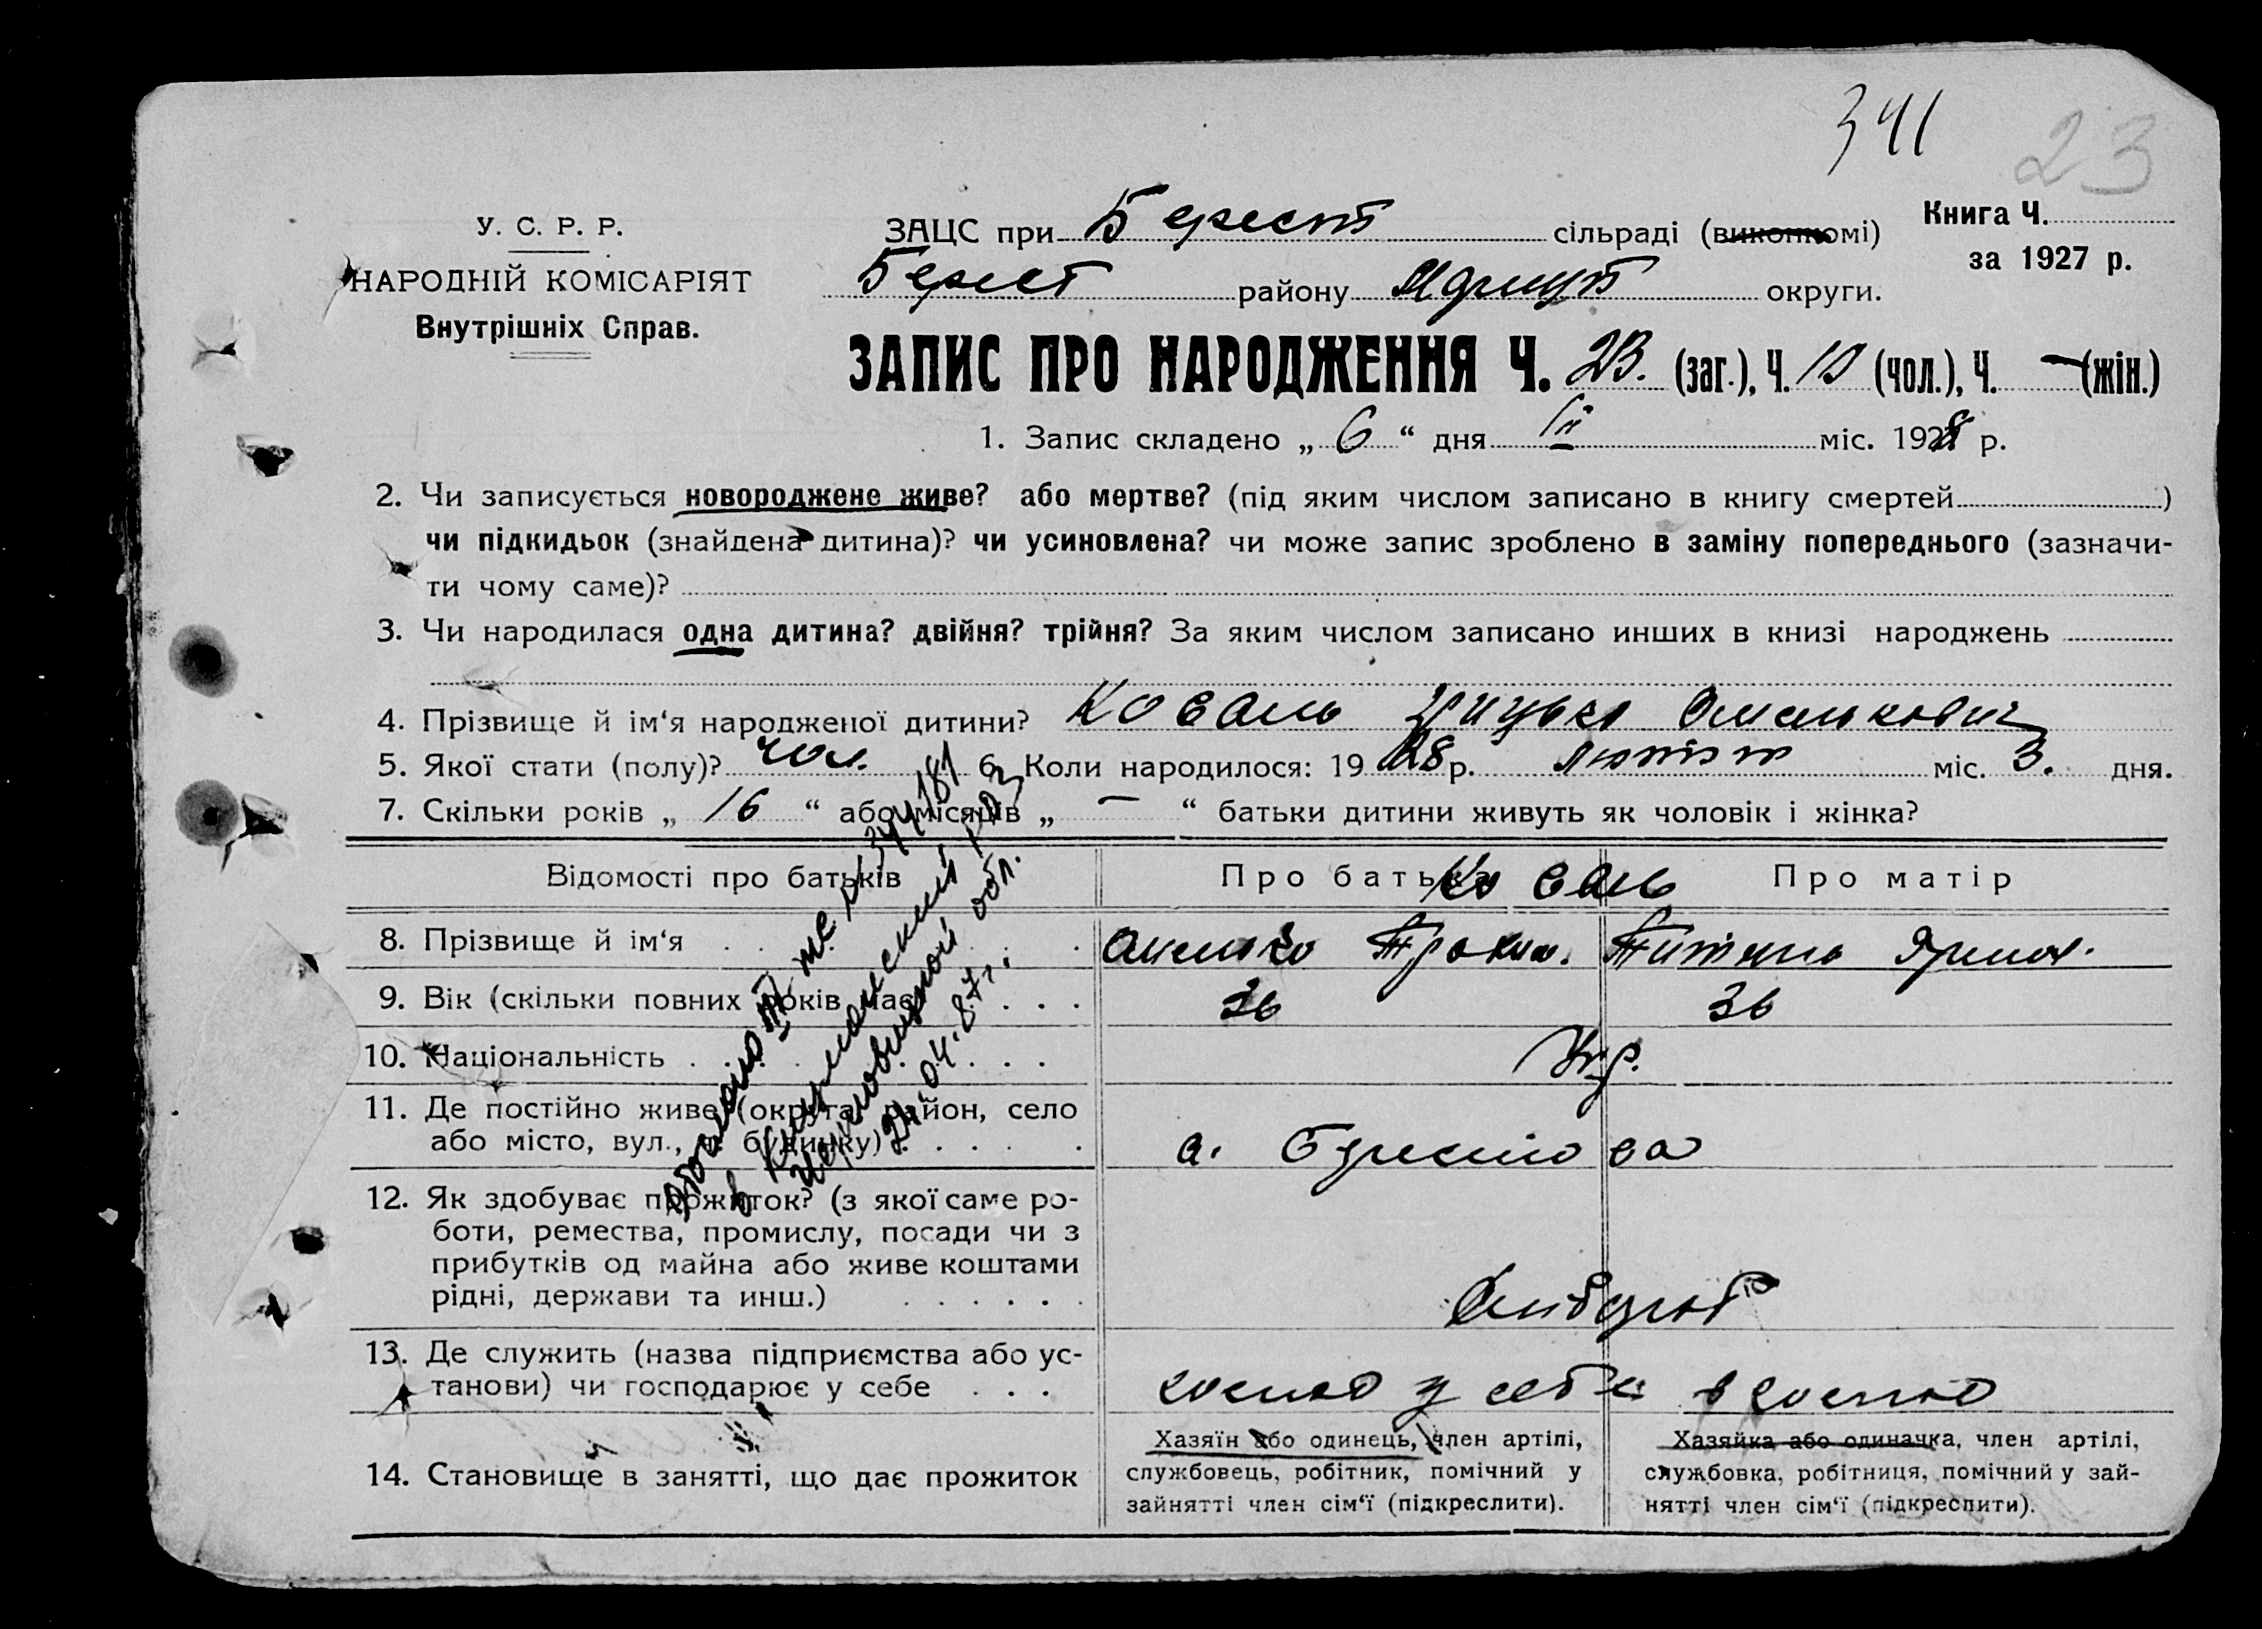 341
23
У. С. Р. Р.
НАРОДНІЙ КОМІСАРІЯТ
Внутрішніх Справ.
ЗАЦС при Берест сільраді (виконкомі)
Книга Ч.
за 1927 р.
Берест району округи.
ЗАПИС ПРО НАРОДЖЕННЯ Ч. 23. (заг.), Ч. 10 (чол.), Ч. — (жін.)
1. Запис складено „ 6 “ дня II міс. 1928 р.
2. Чи записується новороджене живе? або мертве? (під яким числом записано в книгу смертей )
чи підкидьок (знайдена дитина)? чи усиновлена? чи може запис зроблено в заміну попереднього (зазначи-
ти чому саме)?
3. Чи народилася одна дитина? двійня? трійня? За яким числом записано инших в книзі народжень
4. Прізвище й ім‘я народженої дитини? Коваль Грицько Омелькович
5. Якої стати (полу)? чол. 6. Коли народилося: 1928 р. лютого міс. 3. дня.
7. Скільки років „ 16 “ або місяців „ — “ батьки дитини живуть як чоловік і жінка?
Відомості про батьків Про батька Коваль Про матір
8. Прізвище й ім‘я Омелько
9. Вік (скільки повних років має) 36 36
10. Національність Укр.
11. Де постійно живе (округа, район, село
або місто, вул., ч. будинку)
12. Як здобуває прожиток? (з якої саме ро-
боти, ремества, промислу, посади чи з
прибутків од майна або живе коштами
рідні, держави та инш.) Хлібороб
13. Де служить (назва підприємства або ус-
танови) чи господарює у себе у себе
14. Становище в занятті, що дає прожиток
Хазяїн або одинець, член артілі,
службовець, робітник, помічний у
зайнятті член сім‘ї (підкреслити).
Хазяйка або одиначка, член артілі,
службовка, робітниця, помічний у зай-
нятті член сім‘ї (підкреслити).
344181
в обл.
24.04.87г.